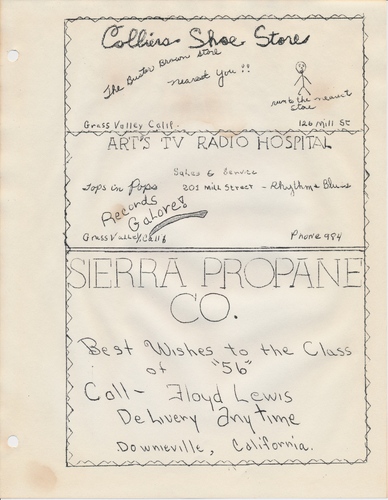 Colliers Shoe Store
The Buster Brown Store
nearest you!!
run to the nearest
store
Grass Valley Calif. 126 Mill St
ART'S TV RADIO HOSPITAL
Sales & Service
Tops in Pops 203 Mill Street - Rhythm & Blues
Records
Galore!
Grass Valley, Calif Phone 984
SIERRA PROPANE
CO.
Best Wishes to the Class
of "56"
Call- Floyd Lewis
Delivery Anytime
Downieville, California.